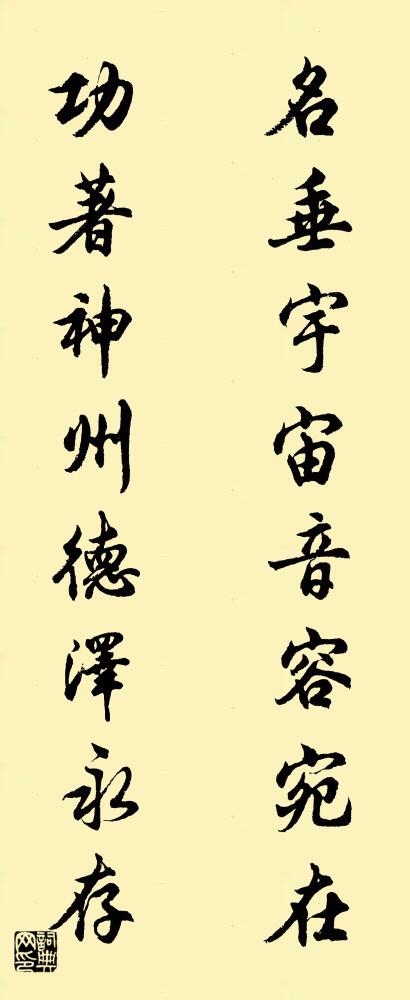 名垂宇宙音容宛在
功著神州德澤永存
詞典网印